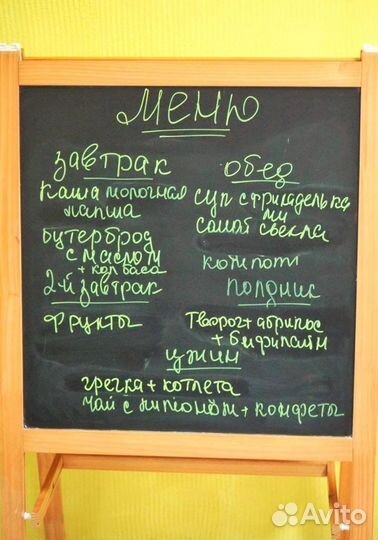 меню
завтрак
каша молочная
лапша
бутерброд
с маслом
+ колбаса
2-й завтрак
фрукты
обед
суп с фрикаделька
ми
салат свекла
компот
полдник
творог + абрикос
+ бифилайн
ужин
гречка + котлета
чай с лимоном + конфеты
Avito